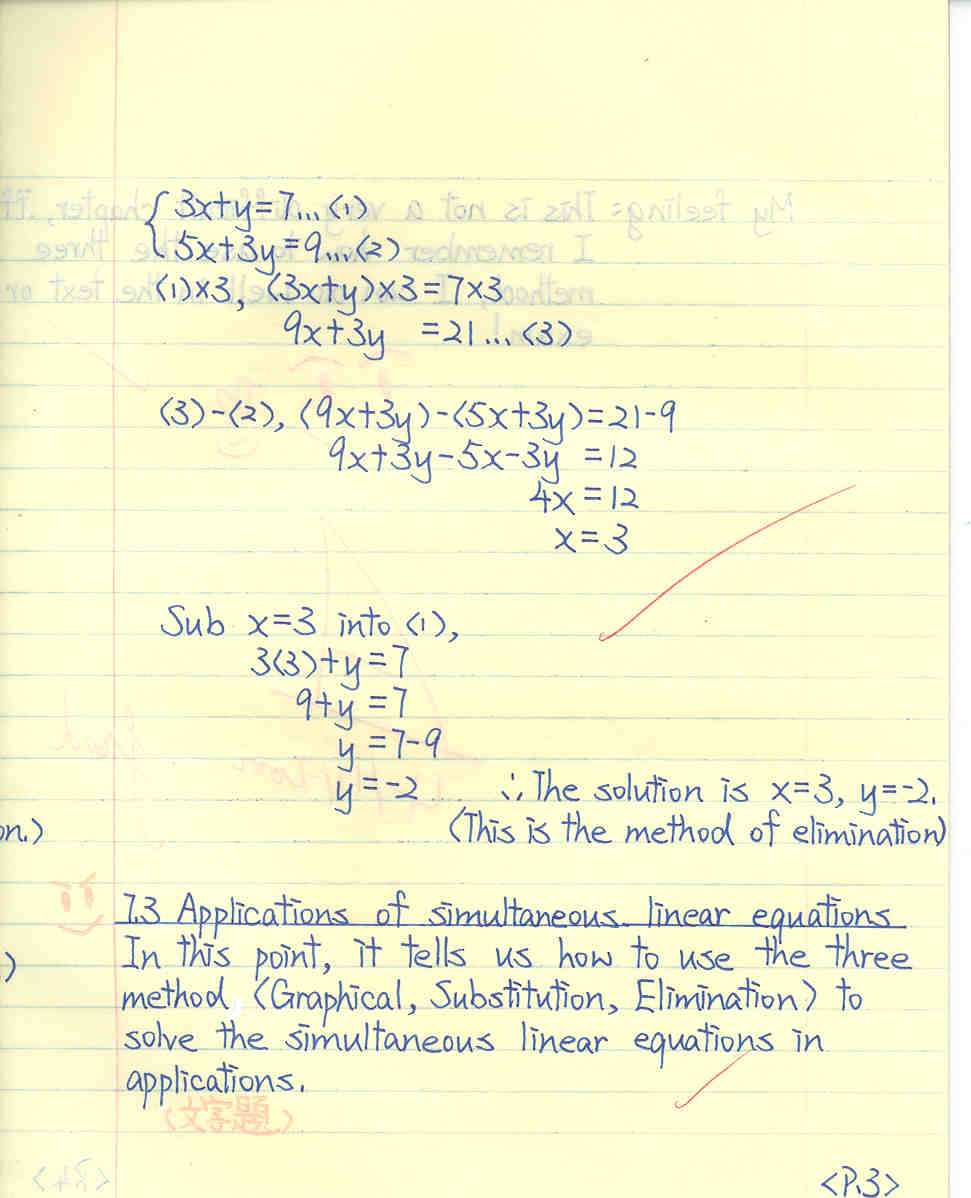 {3x+y=7...(1)
5x+3y=9...(2)
(1)x3, (3x+y)x3=7x3
9x+3y =21...(3)
(3)-(2), (9x+3y)-(5x+3y)=21-9
9x+3y-5x-3y =12
4x =12
x=3
Sub x=3 into (1),
3(3)+y=7
9+y =7
y =7-9
y =-2 ∴ The solution is x=3, y=-2.
on.) (This is the method of elimination)
7.3 Applications of simultaneous linear equations
) In this point, it tells us how to use the three
method (Graphical, Substitution, Elimination) to
solve the simultaneous linear equations in
applications.
(文字題)
<P.3>